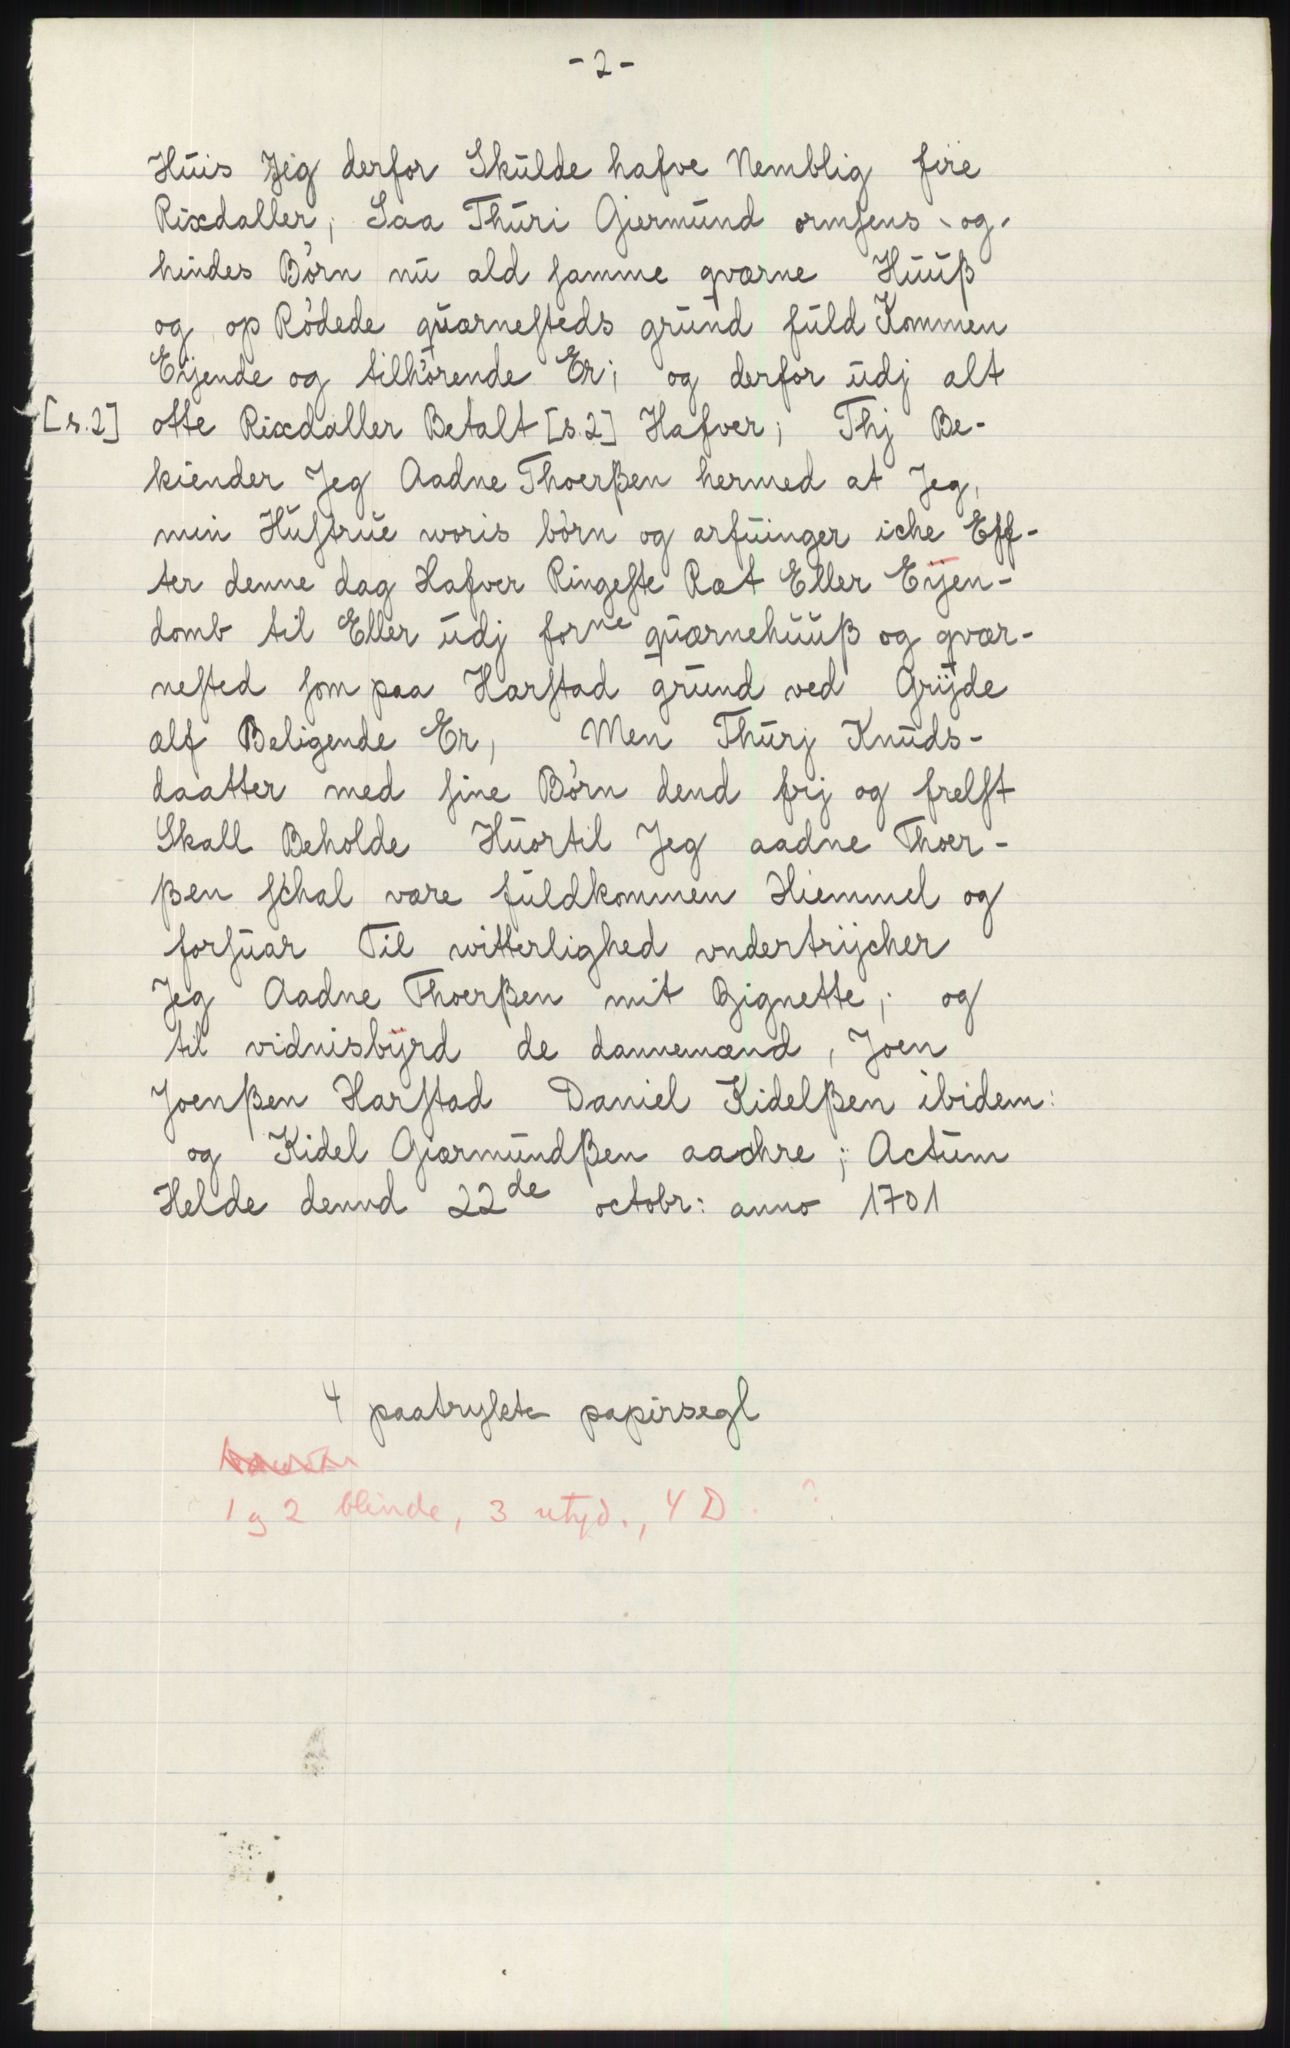 - 2 -
Huis Jeg derfor Skulde hafve Nemblig fire
Rixdaller, Saa Thuri Giermund ormsens og
hindes Børn nu ald samme qværne Huuß
og op Rødede quærnesteds grund fuld Kommen
Eyende og tilhørende Er; og derfor udj alt
[s.2] otte Rixdaller Betalt [s.2] Hafver; Thj Be-
kiender Jeg Aadne Thoerßen hermed at Jeg,
min Hustrue woris børn og arfuinger iche Eff-
ter denne dag Hafver Ringeste Ræt Eller Eÿen-
domb til Eller udj forne quærnehuuß og qvær-
nested som paa Harstad grund ved Grijde
alf Beligende Er, Men Thurj Knuds-
daatter med sine Børn dend frj og frelst
Skall Beholde Huortil Jeg aadne Thoer-
ßen schal være fuldkommen Hiemmel og
forsuar Til witterlighed vndertrijcher
Jeg Aadne Thoerßen mit Zignette; og
til vidnisbÿrd de dannemænd, Joen
Joenßen Harstad Daniel Kidelßen ibidem:
og Kidel Giærmundßen aachre; Actum
Helde dennd 22de octobr: anno 1701
4 paatrykte papirsegl
1 g 2 blinde, 3 utyd., 4 D. ?